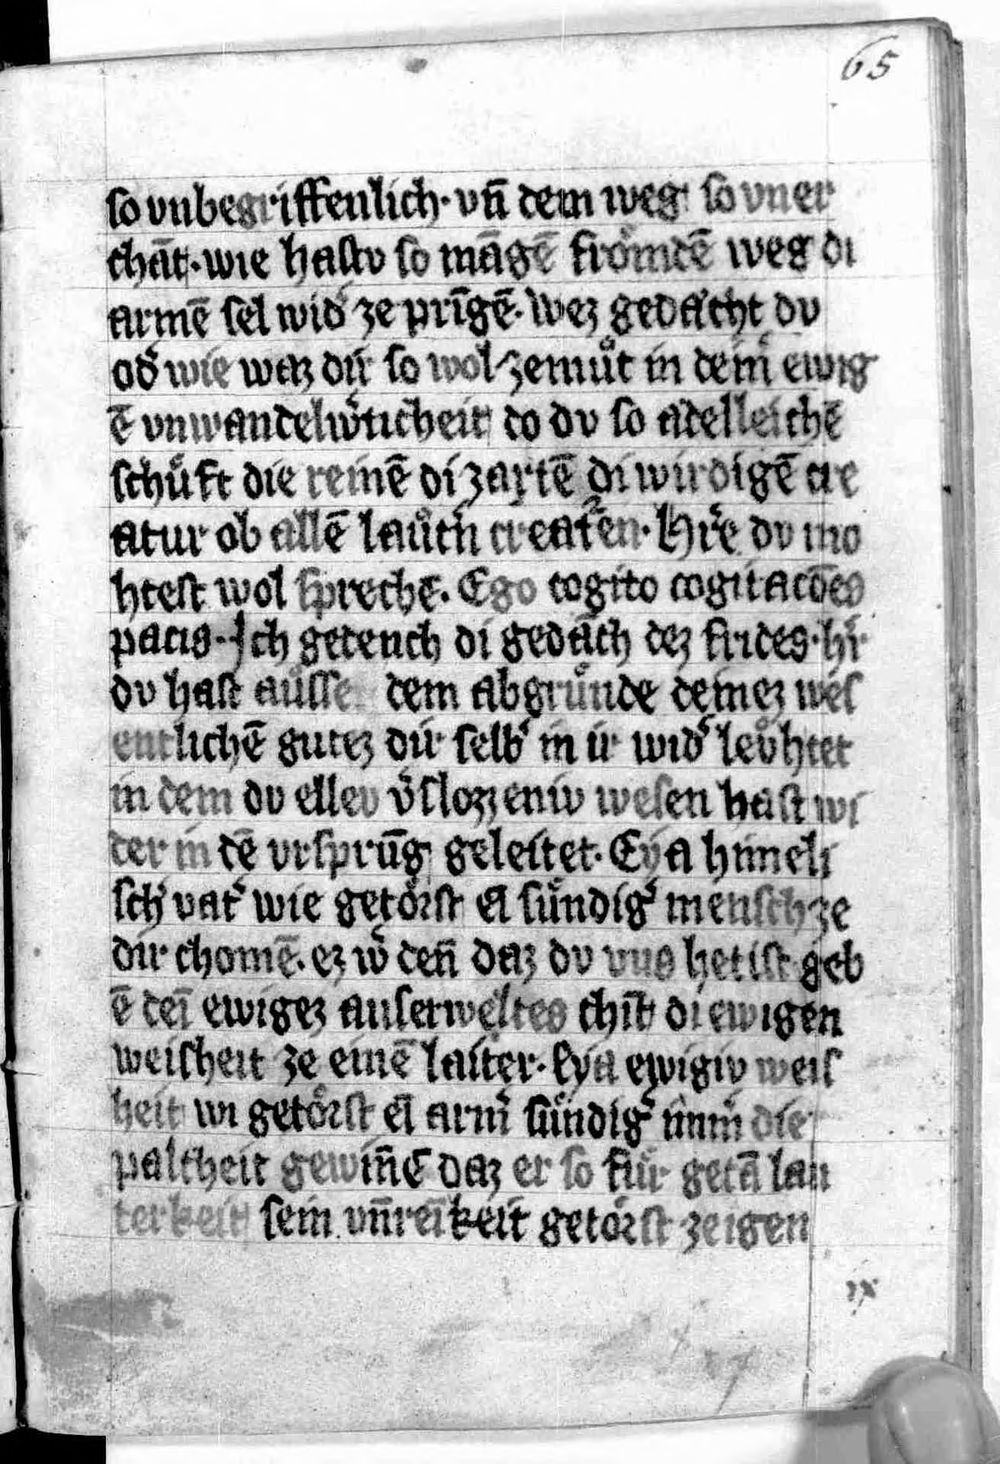 65
so vnbegriffenlich · vn̄ dem weg so vner
chāt · wie hastv so māgē froͤmdē weg di
armē sel widˀ ze prīgē · Wez gedaͤcht dv
odˀ wie waz dir so wol zemuͦt in deinˀ ewig
ē vnwandelwˀticheit do dv so adelleichē
schuͤft die reinē di zartē di wirdigē cre
atur ob allē lauͤtˀn creatˀen · Hˀre dv mo
htest wol sprechē · Ego cogito cogitacōes
pacis · Ich gedench di gedāch dez frides · hˀr
dv hast auͤsse dem abgruͤnde deinez wes
entlichē gutez dir selbˀ in ir widˀ levͤhtet
in dem dv ellev vˀslozzeniv wesen hast wi
der in dē vrsprūg geleitet · Eya himeli
schˀ vatˀ wie getoͤrst ei suͤndigˀ mensch ze
dir chomē · ez wˀ den̄ daz dv vns hetist geb
ē deī ewigez auserweltes chīt di ewigen
weisheit ze einē laiter · Eya ewigiv weis
heit wi getoͤrst eī armˀ suͤndigˀ im̄ˀ die
paltheit gewin̄ē daz er so fuͤr getā lau
terkeit sein vn̄reīkeit getoͤrst zeigen
ix